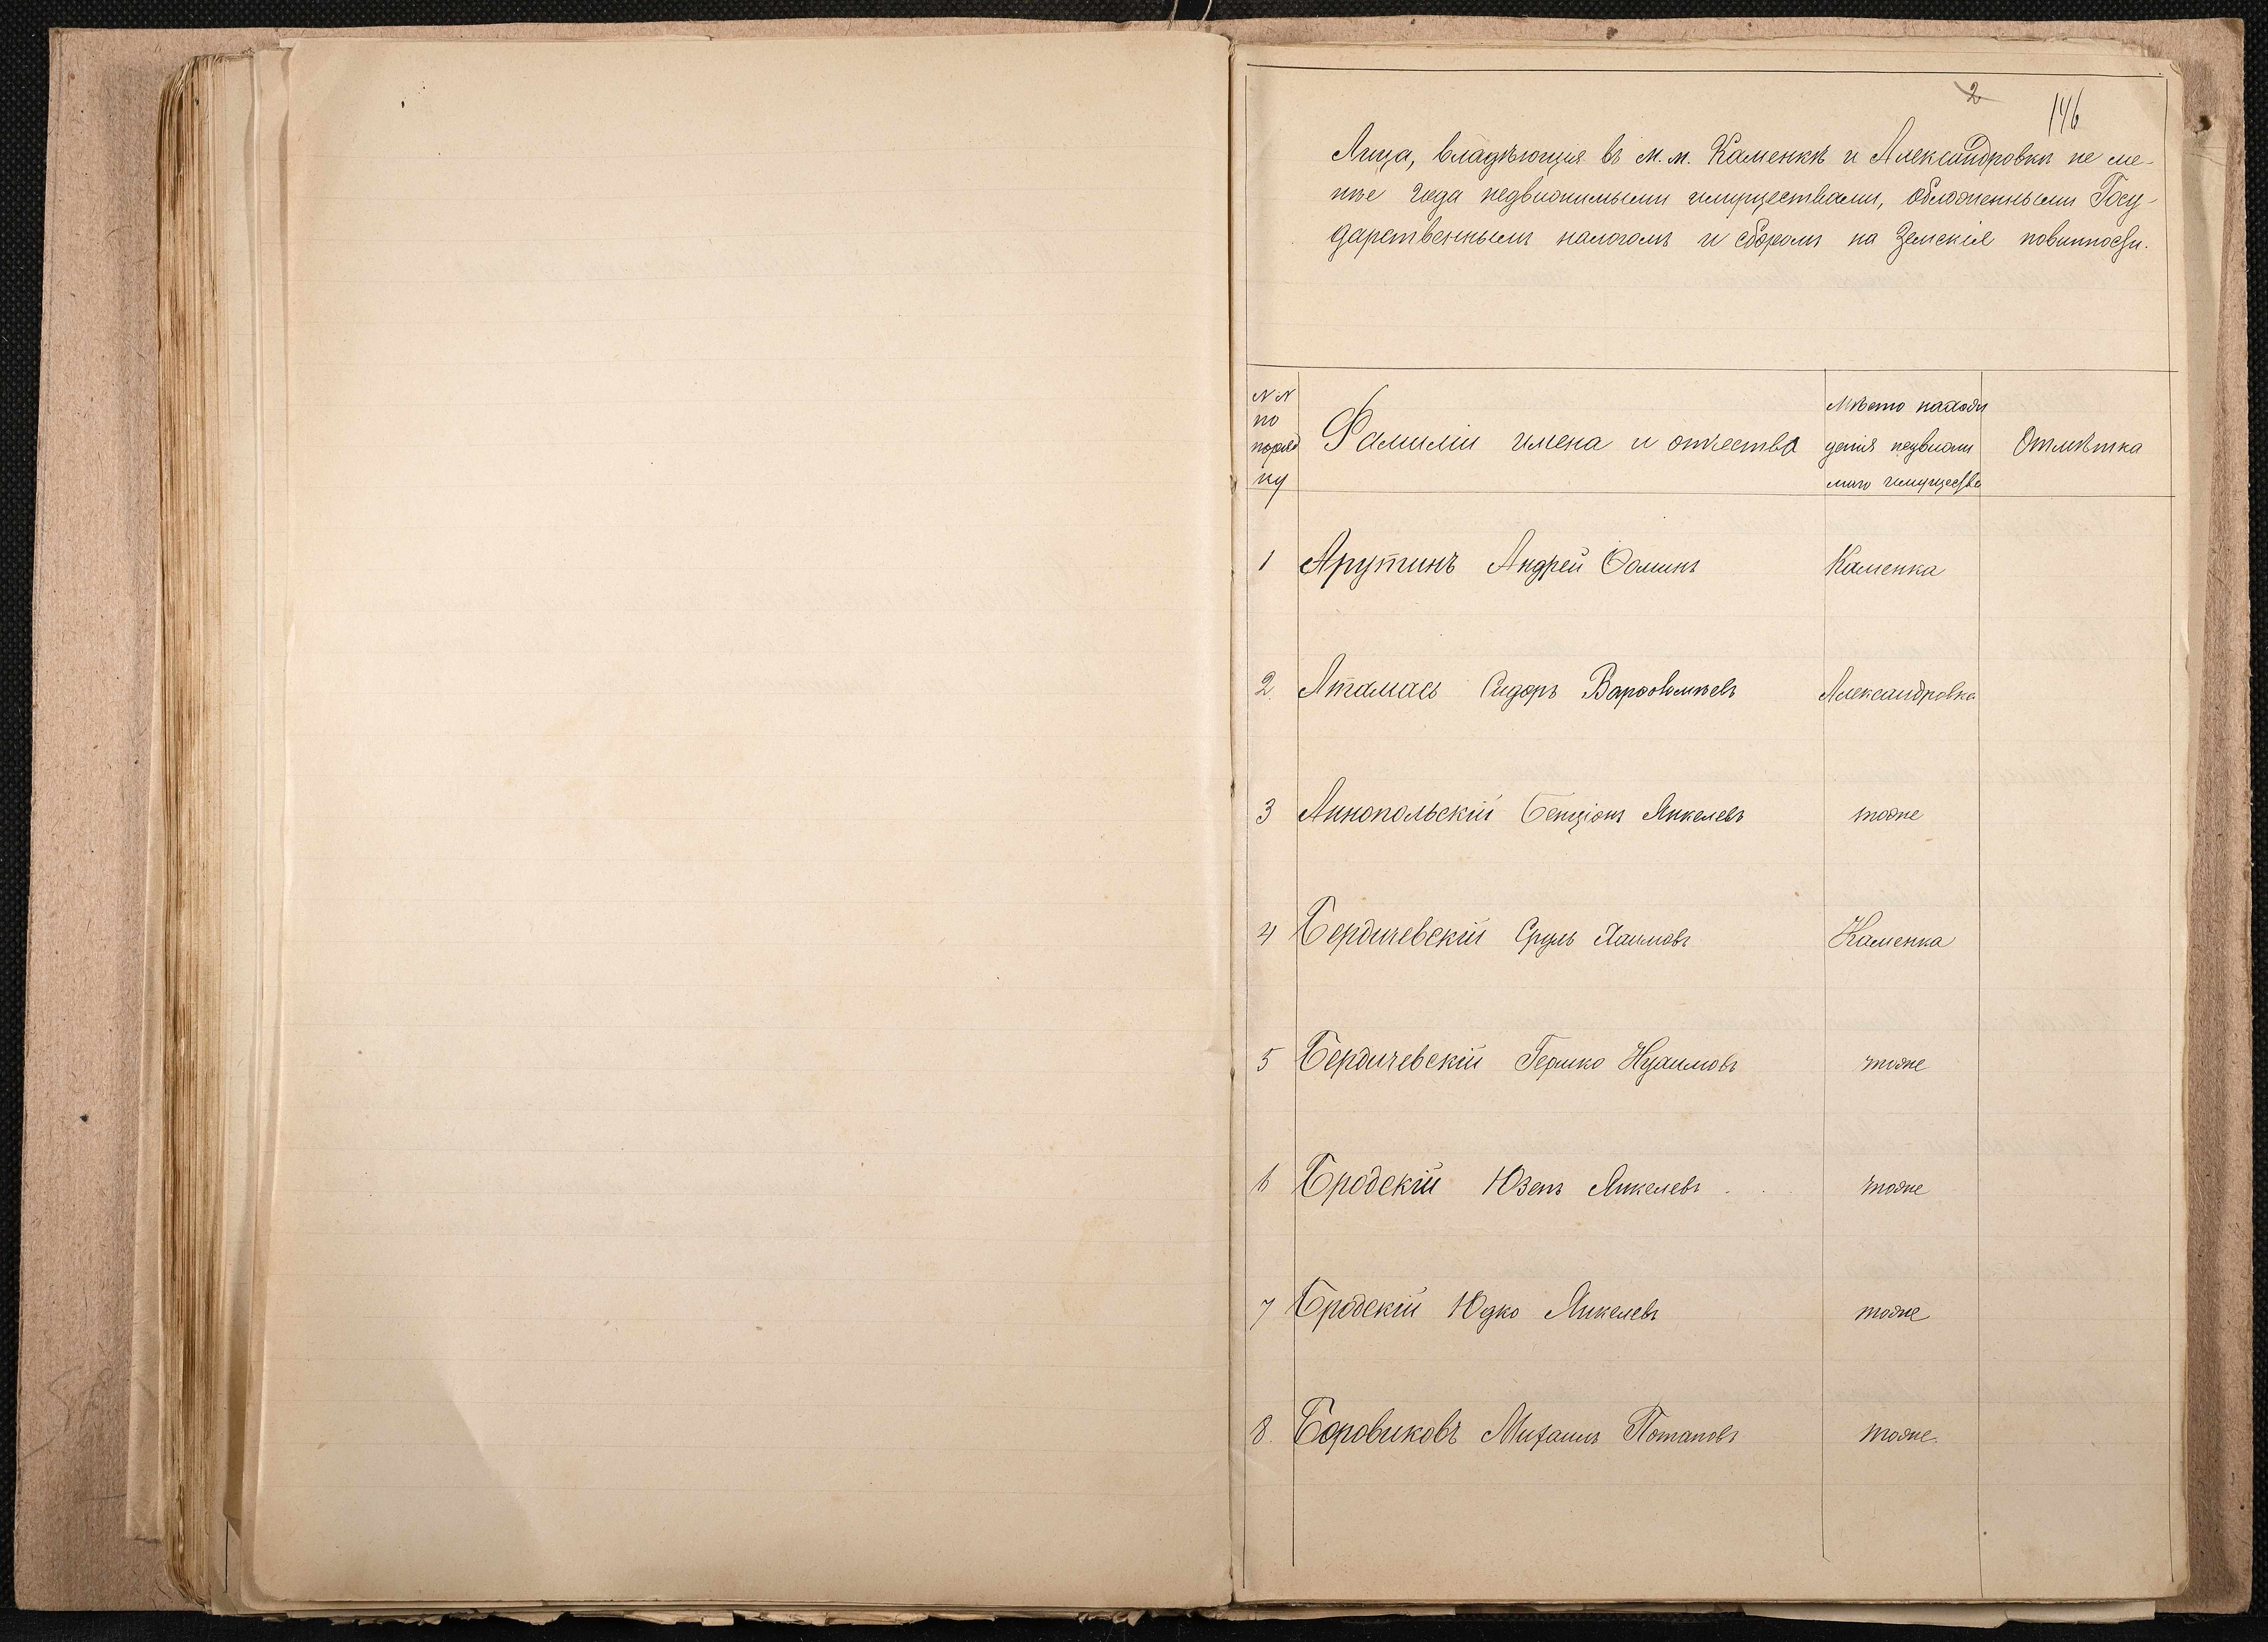 2
146
Лица, владѣющія въ м. м. Каменкѣ и Александровкѣ не ме-
нѣе года недвижимыми имуществами, обложенными Госу-
дарственнымъ налогомъ и сборомъ на Земскія повинности.
N N по порядку
Фамиліи имена и отчества
Мѣсто нахождения недвижимаго имущества
Отмѣтка
1 Арутинъ Андрей Ѳоминъ Каменка
2. Атамась Сидоръ Варѳоломѣевъ Александровка
3 Аннопольскій Бенціонъ Янкелевъ тоже
4 Бердичевскій Сруль Хаимовъ Каменка
5 Бердичевскій Гершко Нухимовъ тоже
6 Бродскій Юзепъ Янкелевъ тоже
7 Бродскій Юдко Янкелевъ тоже
8. Боровиковъ Михаилъ Потаповъ тоже.